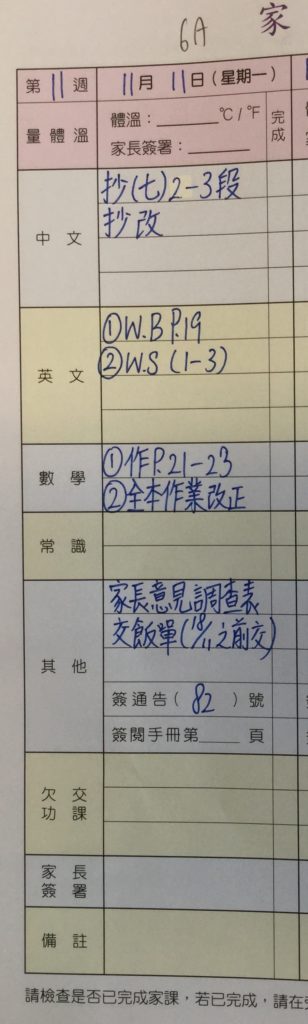 6A 家
第 11 週 11 月 11 日 (星期一)
量體溫 體溫：______ °C / °F 完成
家長簽署：______
中文 抄(七)2-3段
抄改
英文 ①W.B P.19
②W.S (1-3)
數學 ①作P.21-23
②全本作業改正
常識
其他 家長意見調查表
交飯單(18/11之前交)
簽通告( 82 )號
簽閱手冊第____頁
欠交功課
家長簽署
備註
請檢查是否已完成家課，若已完成，請在